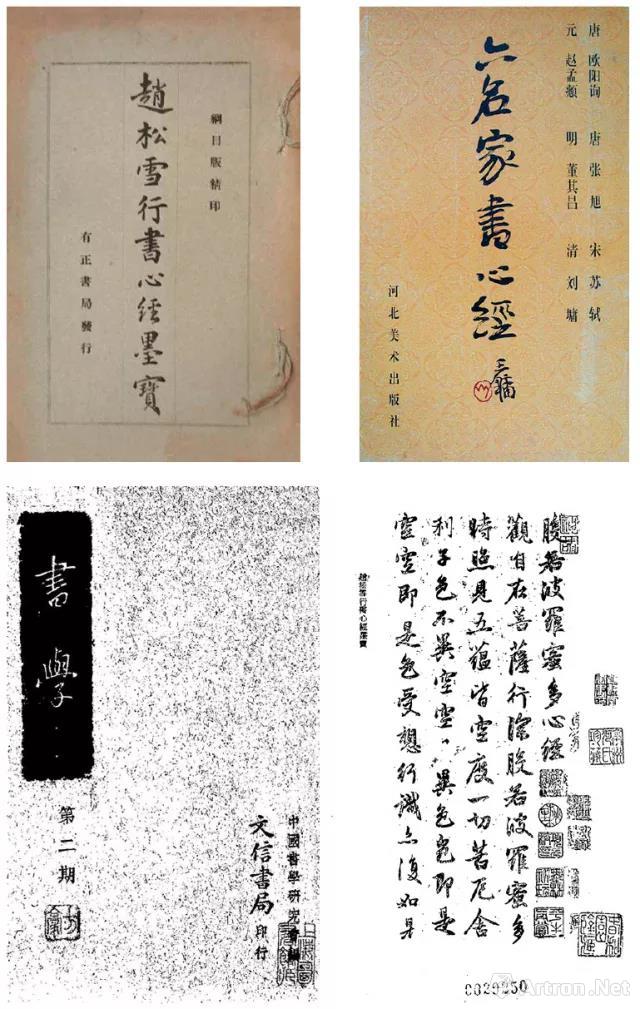 網目版精印
趙松雪行書心經墨寶
有正書局發行
唐 欧阳询 唐 张旭 宋 苏轼
元 赵孟頫 明 董其昌 清 刘墉
六名家書心經
河北美术出版社
中國書學研究會編
文信書局印行
書學
第二期
般若波羅蜜多心經
觀自在菩薩行深般若波羅蜜多
時照見五蘊皆空度一切苦厄舍
利子色不異空空不異色色即是
空空即是色受想行識亦復如是
Artron.Net